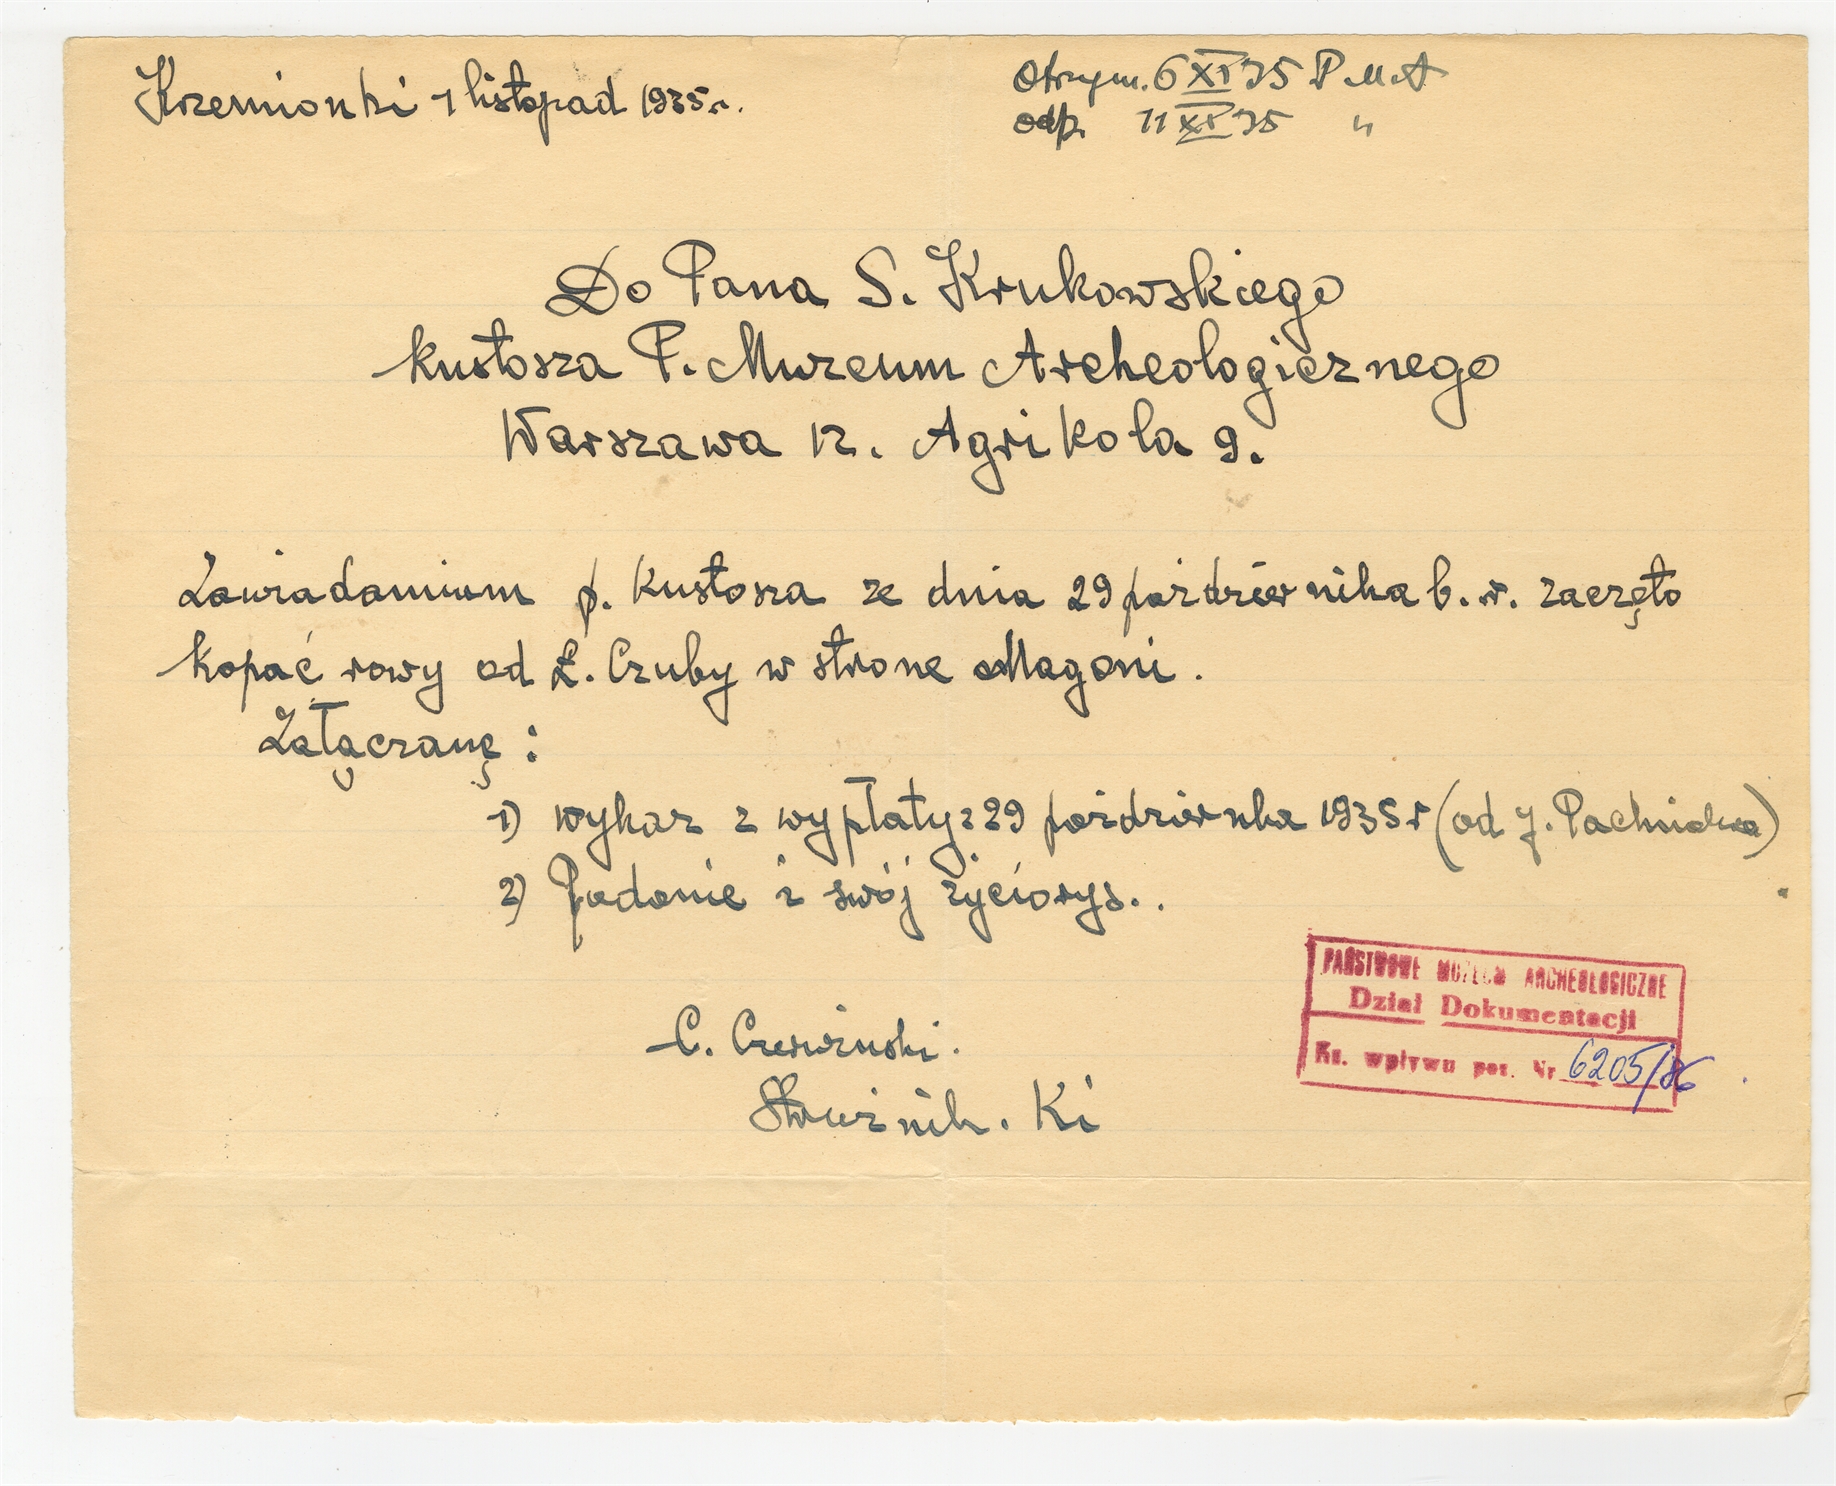 Krzemionki 1 listopad 1935r.
Otrzym. 6 XI 35 P M A
odp. 11 XI 35 "
Do Pana S. Krukowskiego
Kustosza P. Muzeum Archeologicznego
Warszawa 12. Agrikola 9.
Zawiadamiam p. Kustosza że dnia 29 października b. r. zaczęto
kopać rowy od Ł. Czuby w strone Magoni.
Załączanę:
1) wykaz z wypłaty z 29 październka 1935 r (od J. Pachniaka)
2) Podanie i swój życiorys..
C. Czerwiński.
Strużnik. Ki
PAŃSTWOWE MUZEUM ARCHEOLOGICZNE
Dział Dokumentacji
Ks. wpływu poz. Nr 6205/86